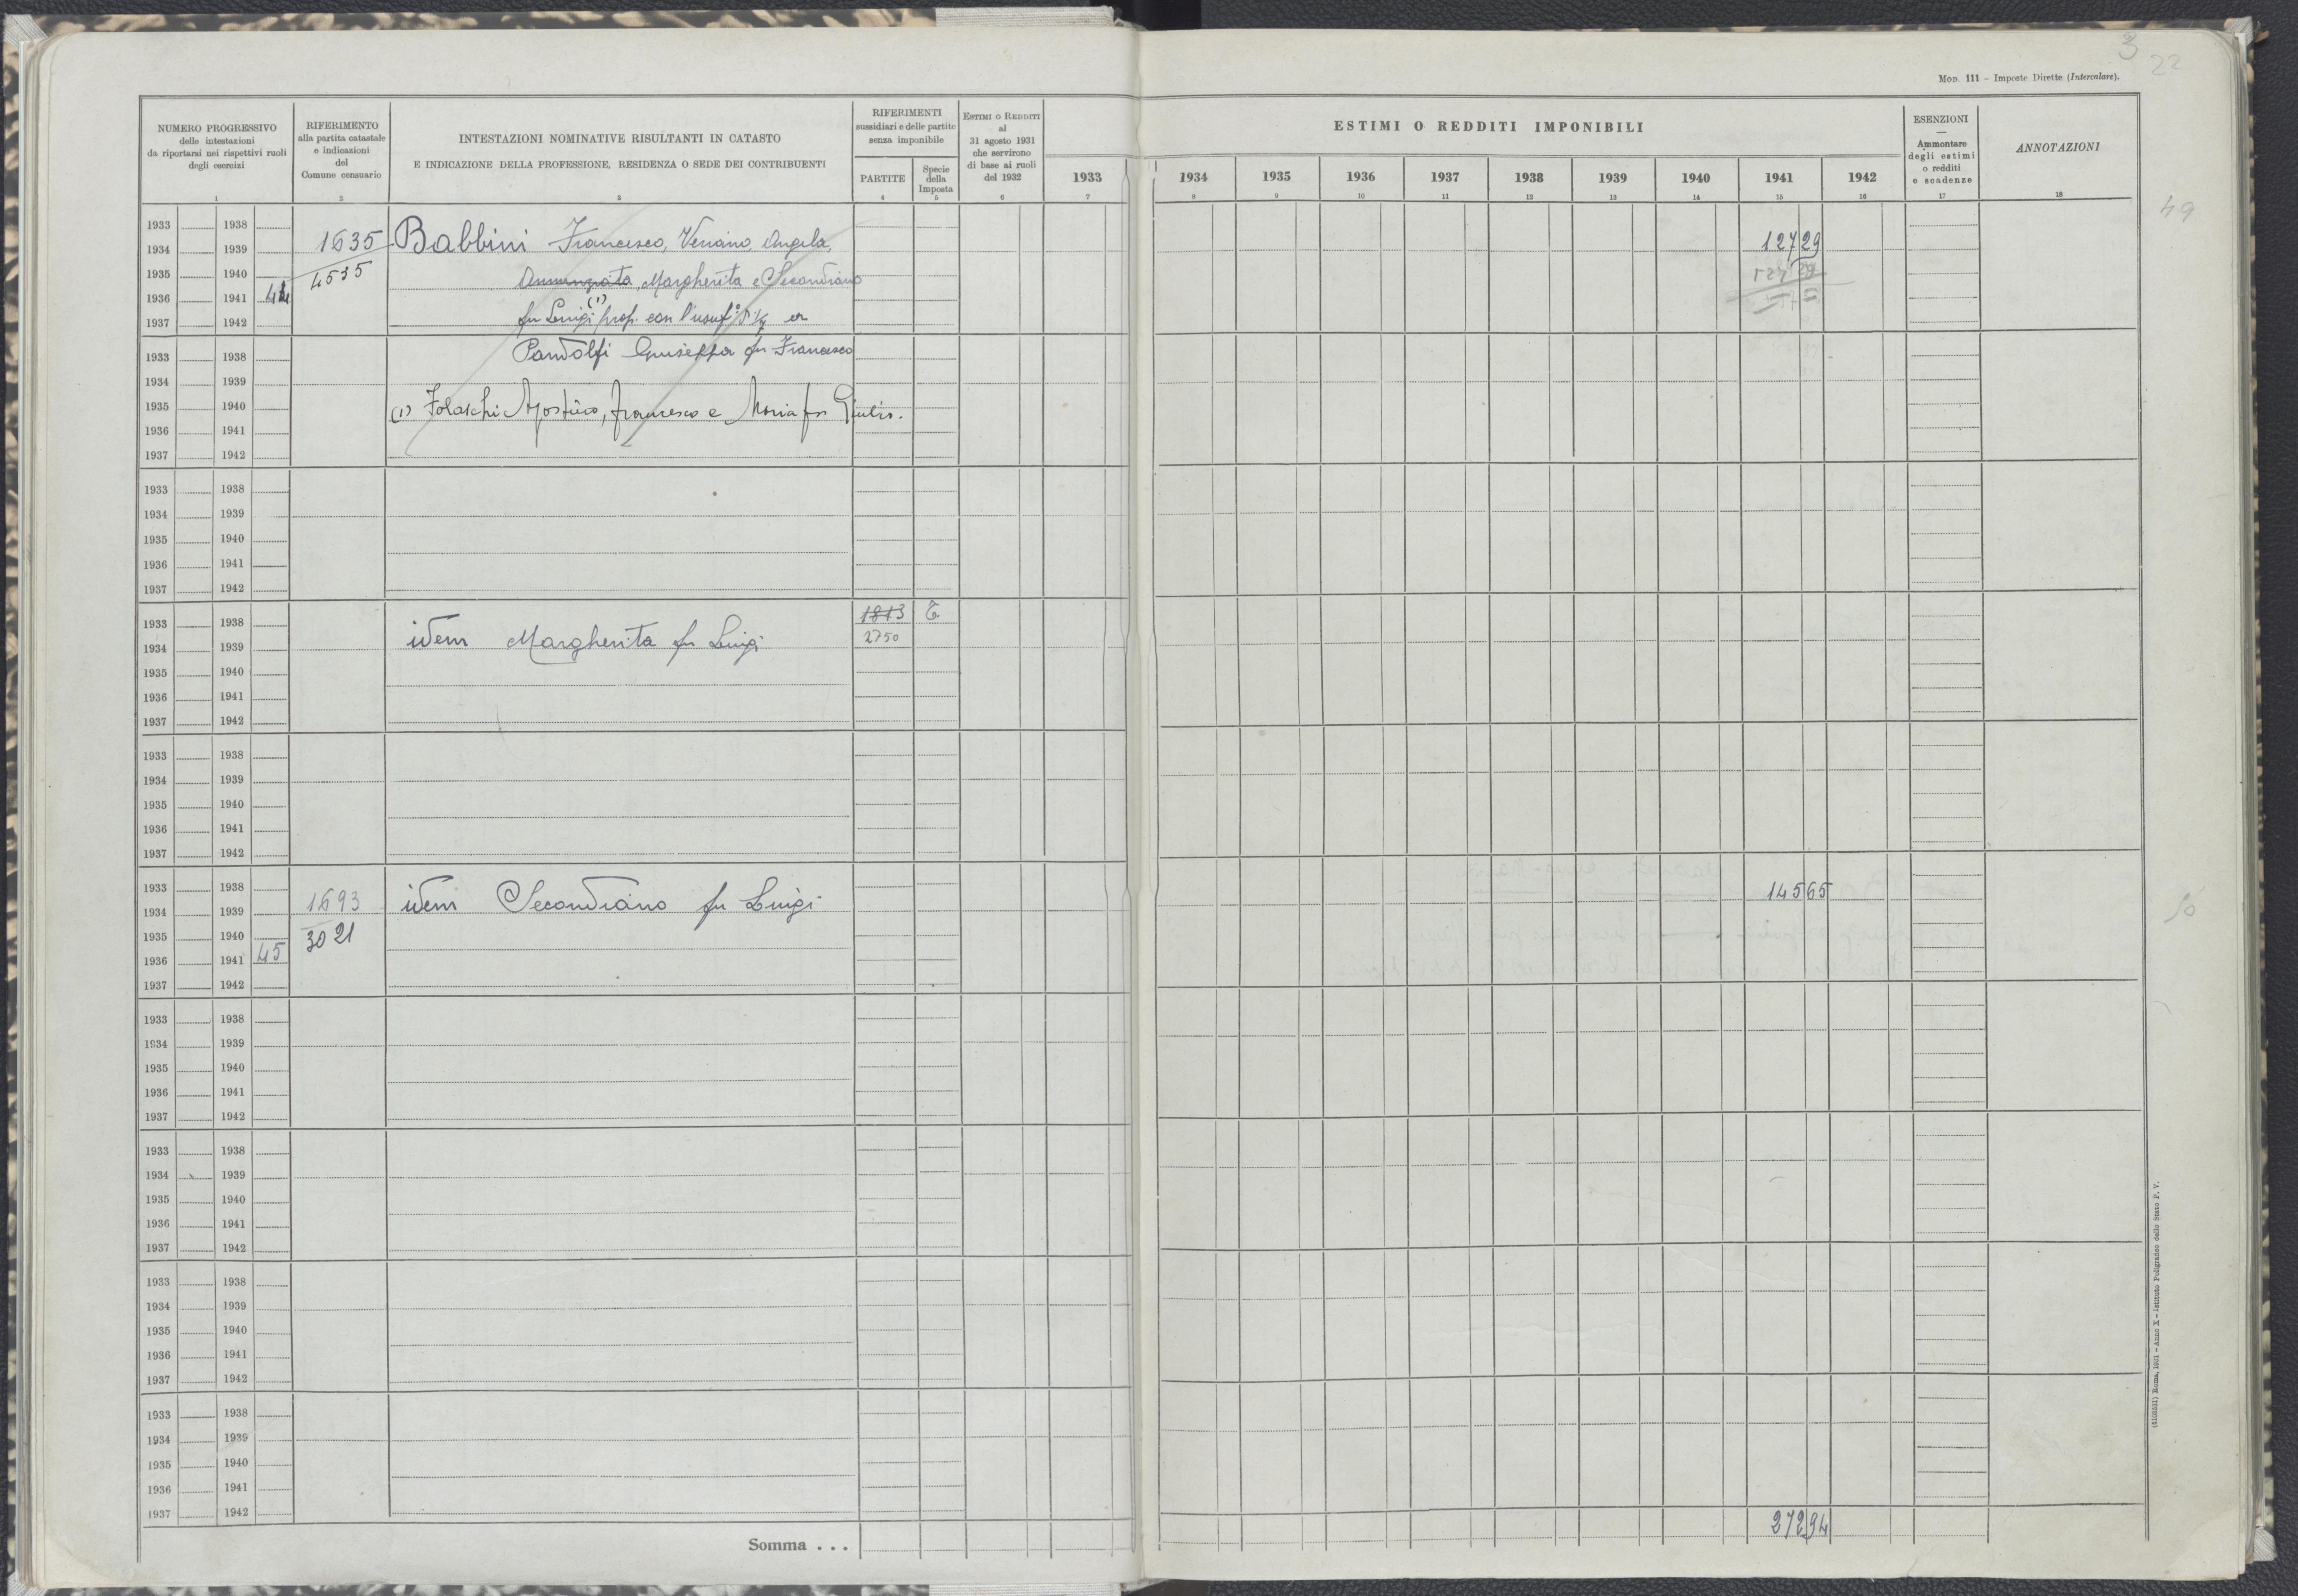 3
22
Mod. 111 – Imposte Dirette (Intercalare).
NUMERO PROGRESSIVO
delle intestazioni
da riportarsi nei rispettivi ruoli
degli esercizi
RIFERIMENTO
alla partita catastale
e indicazioni
del
Comune censuario
INTESTAZIONI NOMINATIVE RISULTANTI IN CATASTO
E INDICAZIONE DELLA PROFESSIONE, RESIDENZA O SEDE DEI CONTRIBUENTI
RIFERIMENTI
sussidiari e delle partite
senza imponibile
PARTITE
Specie
della
Imposta
Estimi o Redditi
al
31 agosto 1931
che servirono
di base ai ruoli
del 1932
ESTIMI O REDDITI IMPONIBILI
1933 1934 1935 1936 1937 1938 1939 1940 1941 1942
ESENZIONI
—
Ammontare
degli estimi
o redditi
e scadenze
ANNOTAZIONI
1 2 3 4 5 6 7 8 9 10 11 12 13 14 15 16 17 18
49
1933 1938
1934 1939 1635 Babbini Francesco, Veriano, Angela, 127 29
1935 1940 4535 Annunziata, Margherita e Secondiano
1936 1941 44 fu Luigi (1) prop. con l'usuf°
1937 1942
1933 1938 Pandolfi Giuseppa fu Francesco
1934 1939
1935 1940 (1) Francesco e Maria fu Giulio.
1936 1941
1937 1942
1933 1938
1934 1939
1935 1940
1936 1941
1937 1942
1933 1938 1813 T
1934 1939 idem Margherita fu Luigi 2750
1935 1940
1936 1941
1937 1942
1933 1938
1934 1939
1935 1940
1936 1941
1937 1942
1933 1938 145 65
1934 1939 1693 idem Secondiano fu Luigi
1935 1940 3021
1936 1941 45
1937 1942
50
1933 1938
1934 1939
1935 1940
1936 1941
1937 1942
1933 1938
1934 1939
1935 1940
1936 1941
1937 1942
1933 1938
1934 1939
1935 1940
1936 1941
1937 1942
1933 1938
1934 1939
1935 1940
1936 1941
1937 1942
272 94
Somma . . .
Roma, 1931 – Anno X – Istituto Poligrafico dello Stato P. V.